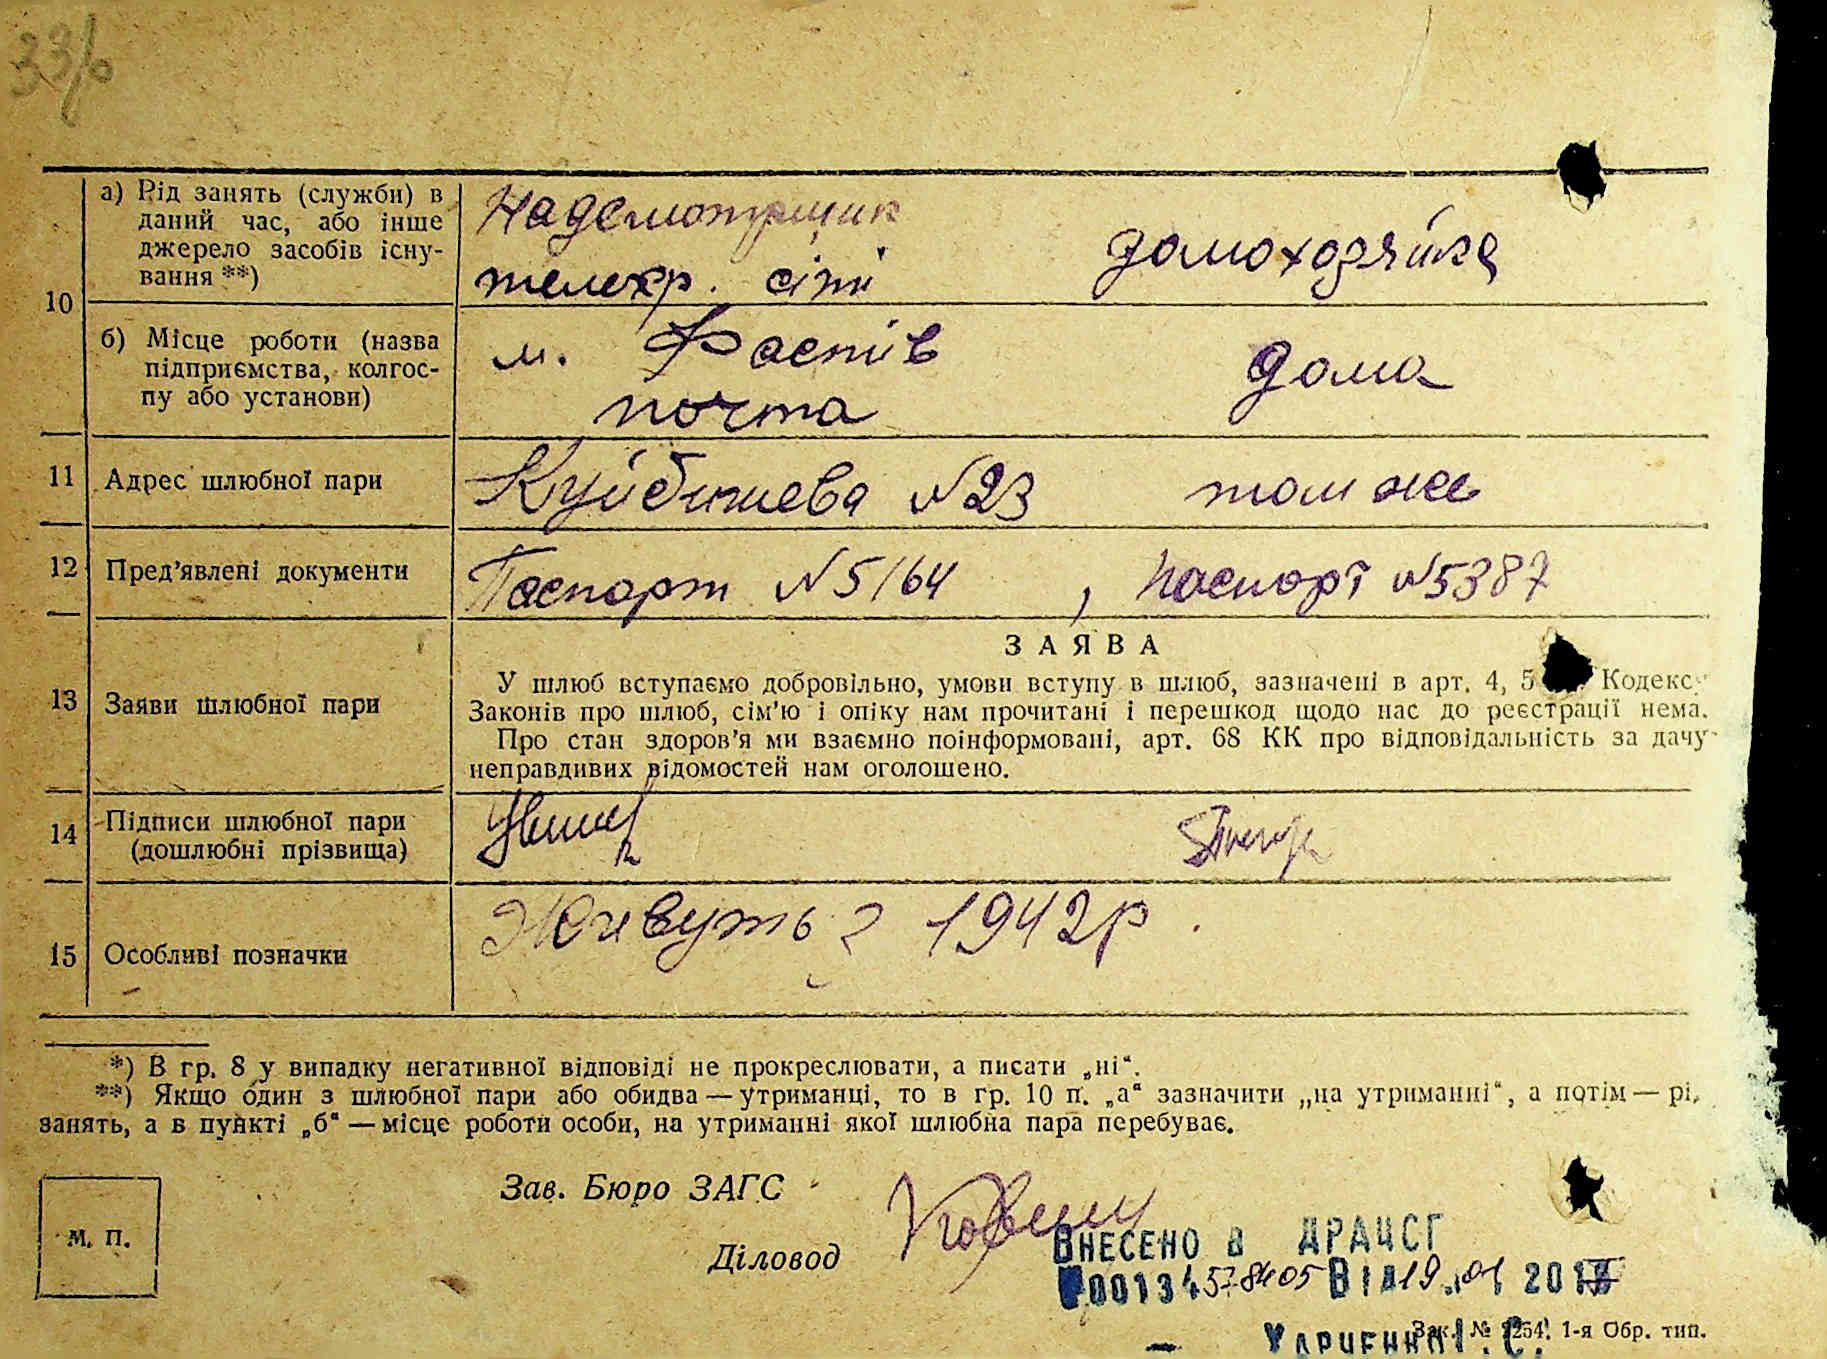 33/6
10
а) Рід занять (служби) в
даний час, або інше
джерело засобів існу-
вання **)
Надсмотрщик
телегр. сіті
домохозяйка
б) Місце роботи (назва
підприємства, колгос-
пу або установи)
м. Фастів
почта
дома
11
Адрес шлюбної пари
Куйбишева №23
том же
12
Пред’явлені документи
Паспорт №5164 , Паспорт №5387
13
Заяви шлюбної пари
ЗАЯВА
У шлюб вступаємо добровільно, умови вступу в шлюб, зазначені в арт. 4, 5 Кодексу
Законів про шлюб, сім’ю і опіку нам прочитані і перешкод щодо нас до реєстрації нема.
Про стан здоров’я ми взаємно поінформовані, арт. 68 КК про відповідальність за дачу
неправдивих відомостей нам оголошено.
14
Підписи шлюбної пари
(дошлюбні прізвища)
15
Особливі позначки
Живуть з 1942р.
*) В гр. 8 у випадку негативної відповіді не прокреслювати, а писати „ні“.
**) Якщо один з шлюбної пари або обидва — утриманці, то в гр. 10 п. „а“ зазначити „на утриманні“, а потім — рі
занять, а в пункті „б“ — місце роботи особи, на утриманні якої шлюбна пара перебуває.
М. П.
Зав. Бюро ЗАГС
Діловод
ВНЕСЕНО В ДРАЦСГ
00134578405 ВІД 19.01 201
Зак. № 1254. 1-я Обр. тип.
Харченко І. С.